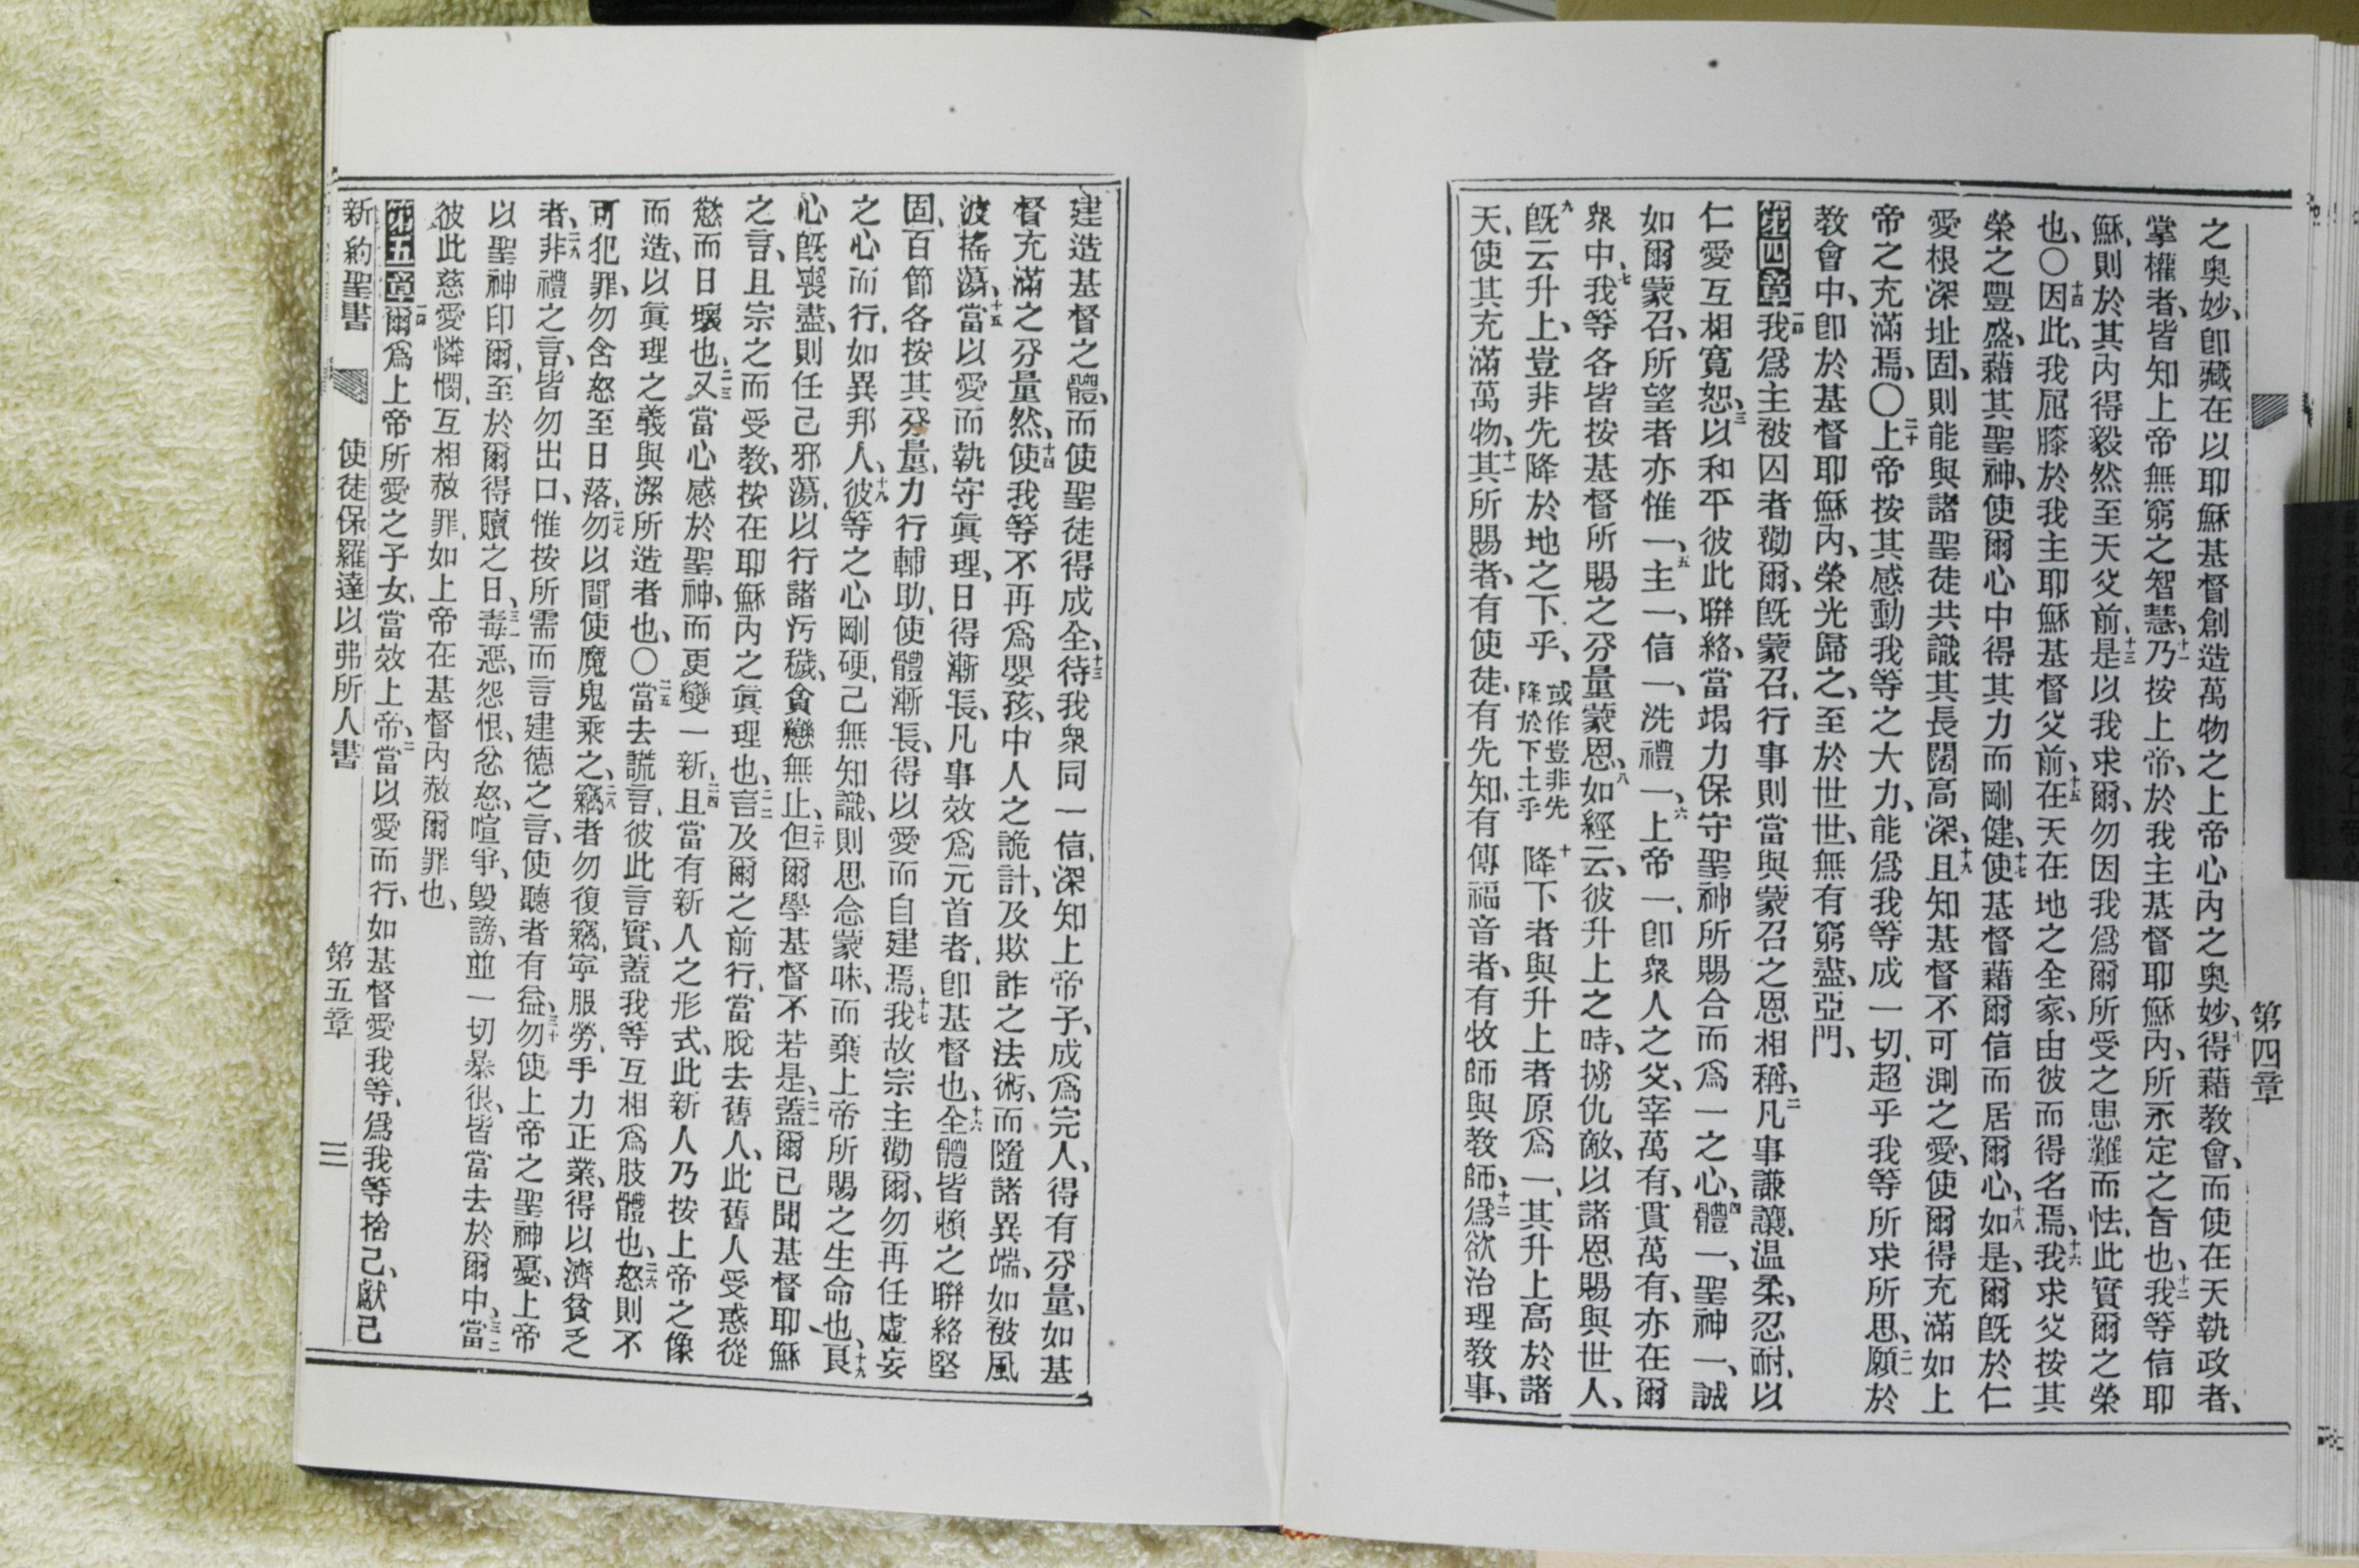 第四章
之奧妙、卽藏在以耶穌基督創造萬物之上帝心內之奧妙、十得藉教會、而使在天執政者、
掌權者、皆知上帝無窮之智慧、十一乃按上帝、於我主基督耶穌內、所永定之旨也、十二我等信耶
穌、則於其內得毅然至天父前、十三是以我求爾、勿因我爲爾所受之患難而怯、此實爾之榮
也、〇十四因此、我屈膝於我主耶穌基督父前、十五在天在地之全家、由彼而得名焉、十六我求父按其
榮之豐盛、藉其聖神、使爾心中得其力而剛健、十七使基督藉爾信而居爾心、十八如是、爾旣於仁
愛根深址固、則能與諸聖徒共識其長闊高深、十九且知基督不可測之愛、使爾得充滿如上
帝之充滿焉、〇二十上帝按其感動我等之大力、能爲我等成一切、超乎我等所求所思、二一願於
教會中、卽於基督耶穌內、榮光歸之、至於世世、無有窮盡、亞門、
第四章一節我爲主被囚者勸爾、旣蒙召、行事則當與蒙召之恩相稱、二凡事謙讓、温柔、忍耐、以
仁愛互相寬恕、三以和平彼此聯絡、當竭力保守聖神所賜合而爲一之心、四體一、聖神一、誠
如爾蒙召、所望者亦惟一、五主一、信一、洗禮一、六上帝一、卽衆人之父、宰萬有、貫萬有、亦在爾
衆中、七我等各皆按基督所賜之分量蒙恩、八如經云、彼升上之時、擄仇敵、以諸恩賜與世人、
九旣云升上、豈非先降於地之下乎、或作豈非先降於下土乎十降下者與升上者原爲一、其升上高於諸
天、使其充滿萬物、十一其所賜者、有使徒、有先知、有傳福音者、有牧師與教師、十二爲欲治理教事、
建造基督之體、而使聖徒得成全、十三待我衆同一信、深知上帝子、成爲完人、得有分量、如基
督充滿之分量然、十四使我等不再爲嬰孩、中人之詭計、及欺詐之法術、而隨諸異端、如被風
波搖蕩、十五當以愛而執守眞理、日得漸長、凡事效爲元首者、卽基督也、十六全體皆賴之聯絡堅
固、百節各按其分量、力行輔助、使體漸長、得以愛而自建焉、十七我故宗主勸爾、勿再任虛妄
之心而行、如異邦人、十八彼等之心剛硬、己無知識、則思念蒙昧、而棄上帝所賜之生命也、十九良
心旣喪盡、則任己邪蕩、以行諸污穢、貪戀無止、二十但爾學基督不若是、二一蓋爾已聞基督耶穌
之言、且宗之而受教、按在耶穌內之眞理也、二二言及爾之前行、當脫去舊人、此舊人受惑從
慾而日壞也、二三又當心感於聖神、而更變一新、二四且當有新人之形式、此新人乃按上帝之像
而造、以眞理之義與潔所造者也、〇二五當去謊言、彼此言實、蓋我等互相爲肢體也、二六怒則不
可犯罪、勿含怒至日落、二七勿以間使魔鬼乘之、二八竊者勿復竊、寧服勞、手力正業、得以濟貧乏
者、二九非禮之言、皆勿出口、惟按所需而言建德之言、使聽者有益、三十勿使上帝之聖神憂、上帝
以聖神印爾、至於爾得贖之日、三一毒惡、怨恨、忿怒、喧爭、毀謗、並一切暴很、皆當去於爾中、三二當
彼此慈愛憐憫、互相赦罪、如上帝在基督內赦爾罪也、
第五章一節爾爲上帝所愛之子女、當效上帝、二當以愛而行、如基督愛我等、爲我等捨己、獻己
新約聖書 使徒保羅達以弗所人書 第五章 三